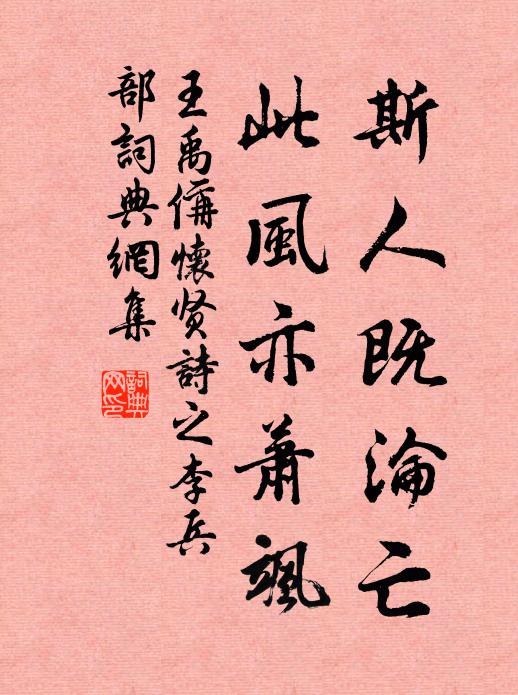 斯人既淪亡
此風亦蕭颯
王禹偁懷贤詩之李兵
部詞典網集
詞典网印